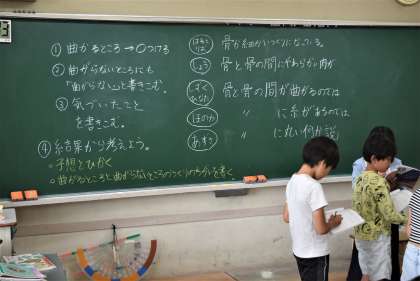 ① 曲がるところ→○つける
② 曲がらないところにも
「曲がらない」と書きこむ。
③ 気づいたこと
を書きこむ。
④ 結果から考えよう。
・予想とひかく
・曲がるところと曲がらないところのつくりのちがいを書く。
骨が細かいつくりになっている。
しょう
骨と骨の間にやわらかい肉が
骨と骨の間が曲がるのでは
ほのか
〃 に糸があるのでは
あすか
〃 に丸い何か説